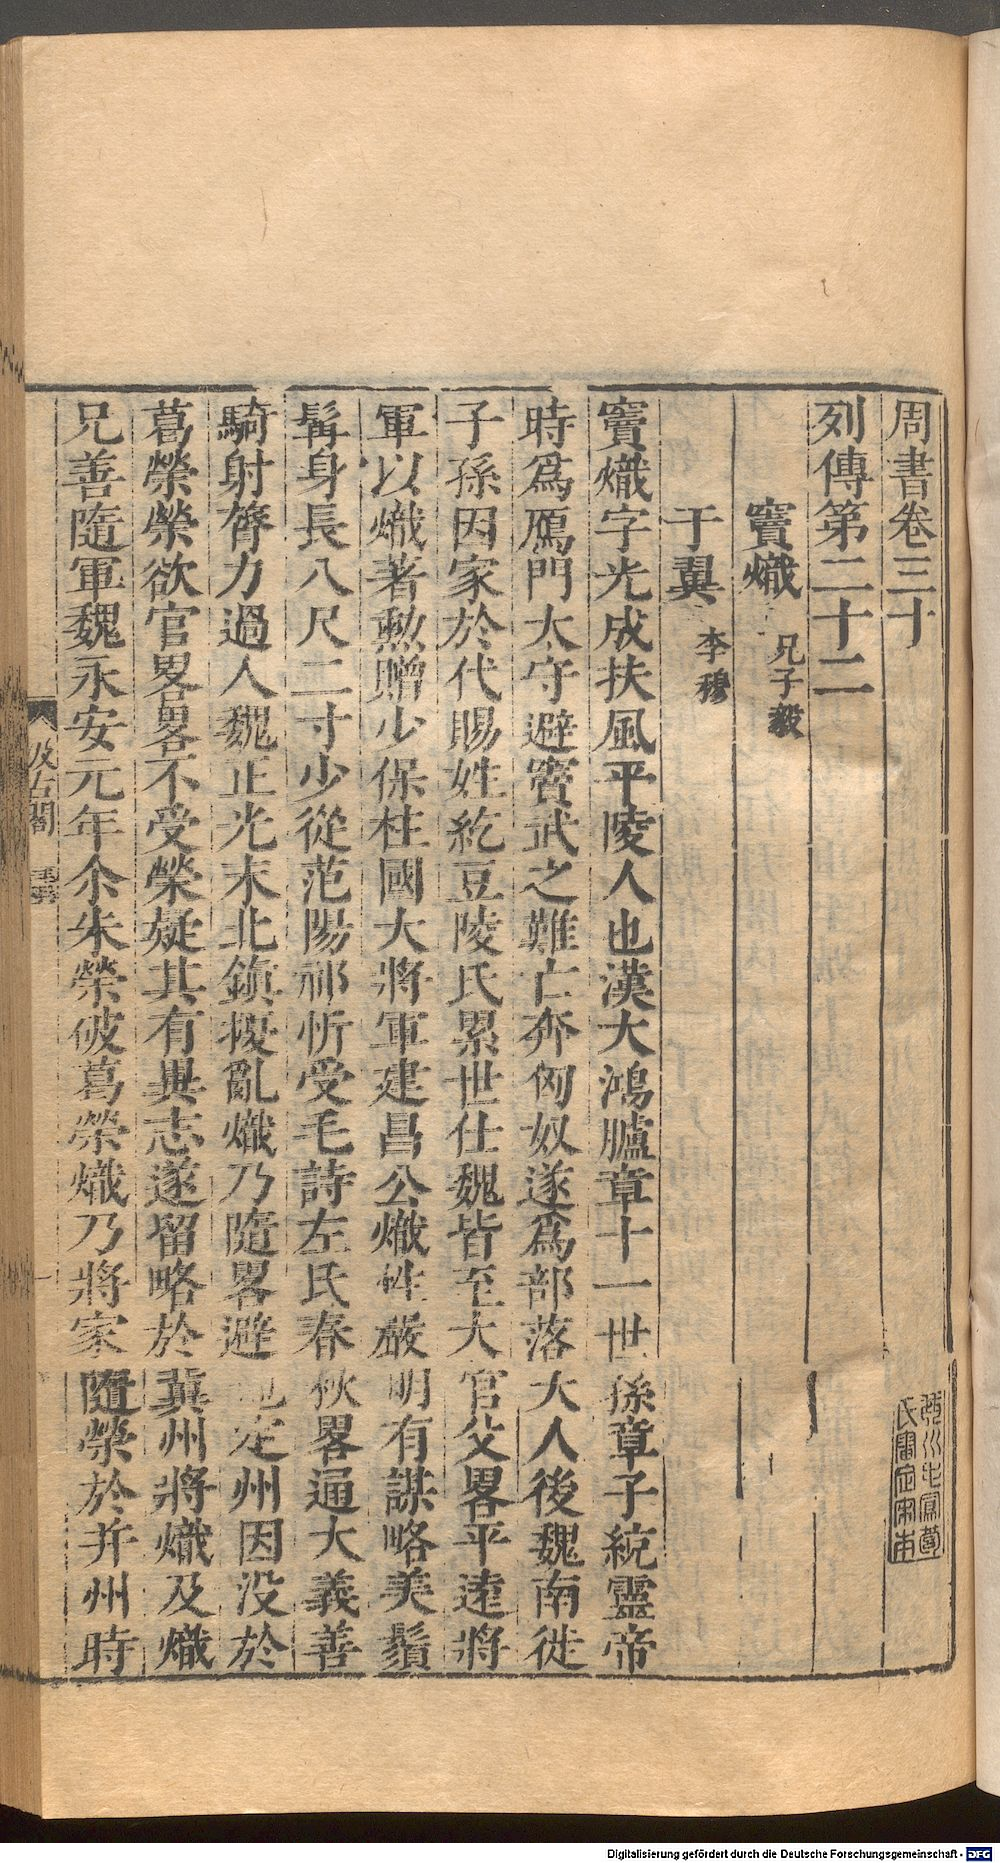 周書卷三十
列傳第二十二
竇熾 兄子毅
于翼 李穆
竇熾字光成扶風平陵人也漢大鴻臚章十一世孫章子統靈帝
時爲鴈門太守避竇武之難亡奔匈奴遂爲部落大人後魏南徙
子孫因家於代賜姓紇豆陵氏累世仕魏皆至大官父畧平遠將
軍以熾著勲贈少保柱國大將軍建昌公熾性嚴明有謀略美鬚
髯身長八尺二寸少從范陽祁忻受毛詩左氏春秋畧通大義善
騎射膂力過人魏正光末北鎮擾亂熾乃隨畧避地定州因没於
葛榮榮欲官畧畧不受榮疑其有異志遂留略於冀州將熾及熾
兄善隨軍魏永安元年尒朱榮破葛榮熾乃將家隨榮於并州時
汲古閣 毛氏
Digitalisierung gefördert durch die Deutsche Forschungsgemeinschaft - DFG